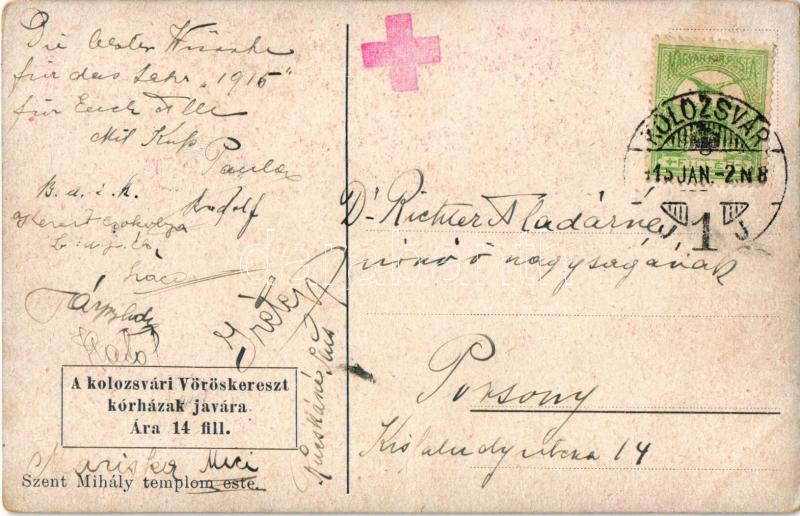 Die besten Wünsche
für das Jahr „1915"
für Euch Alle
Mit Kuss
Paula
Rudolf
B. ú. é. k.
Gréte
Mariska Mici
A kolozsvári Vöröskereszt
kórházak javára
Ára 14 fill.
Szent Mihály templom este.
MAGYAR KIR. POSTA
KOLOZSVÁR
915 JAN.-2.N8
1
Dr Richter Aladárné
úrnő ő nagyságának
Pozsony
Kisfaludy utcza 14
darabanth